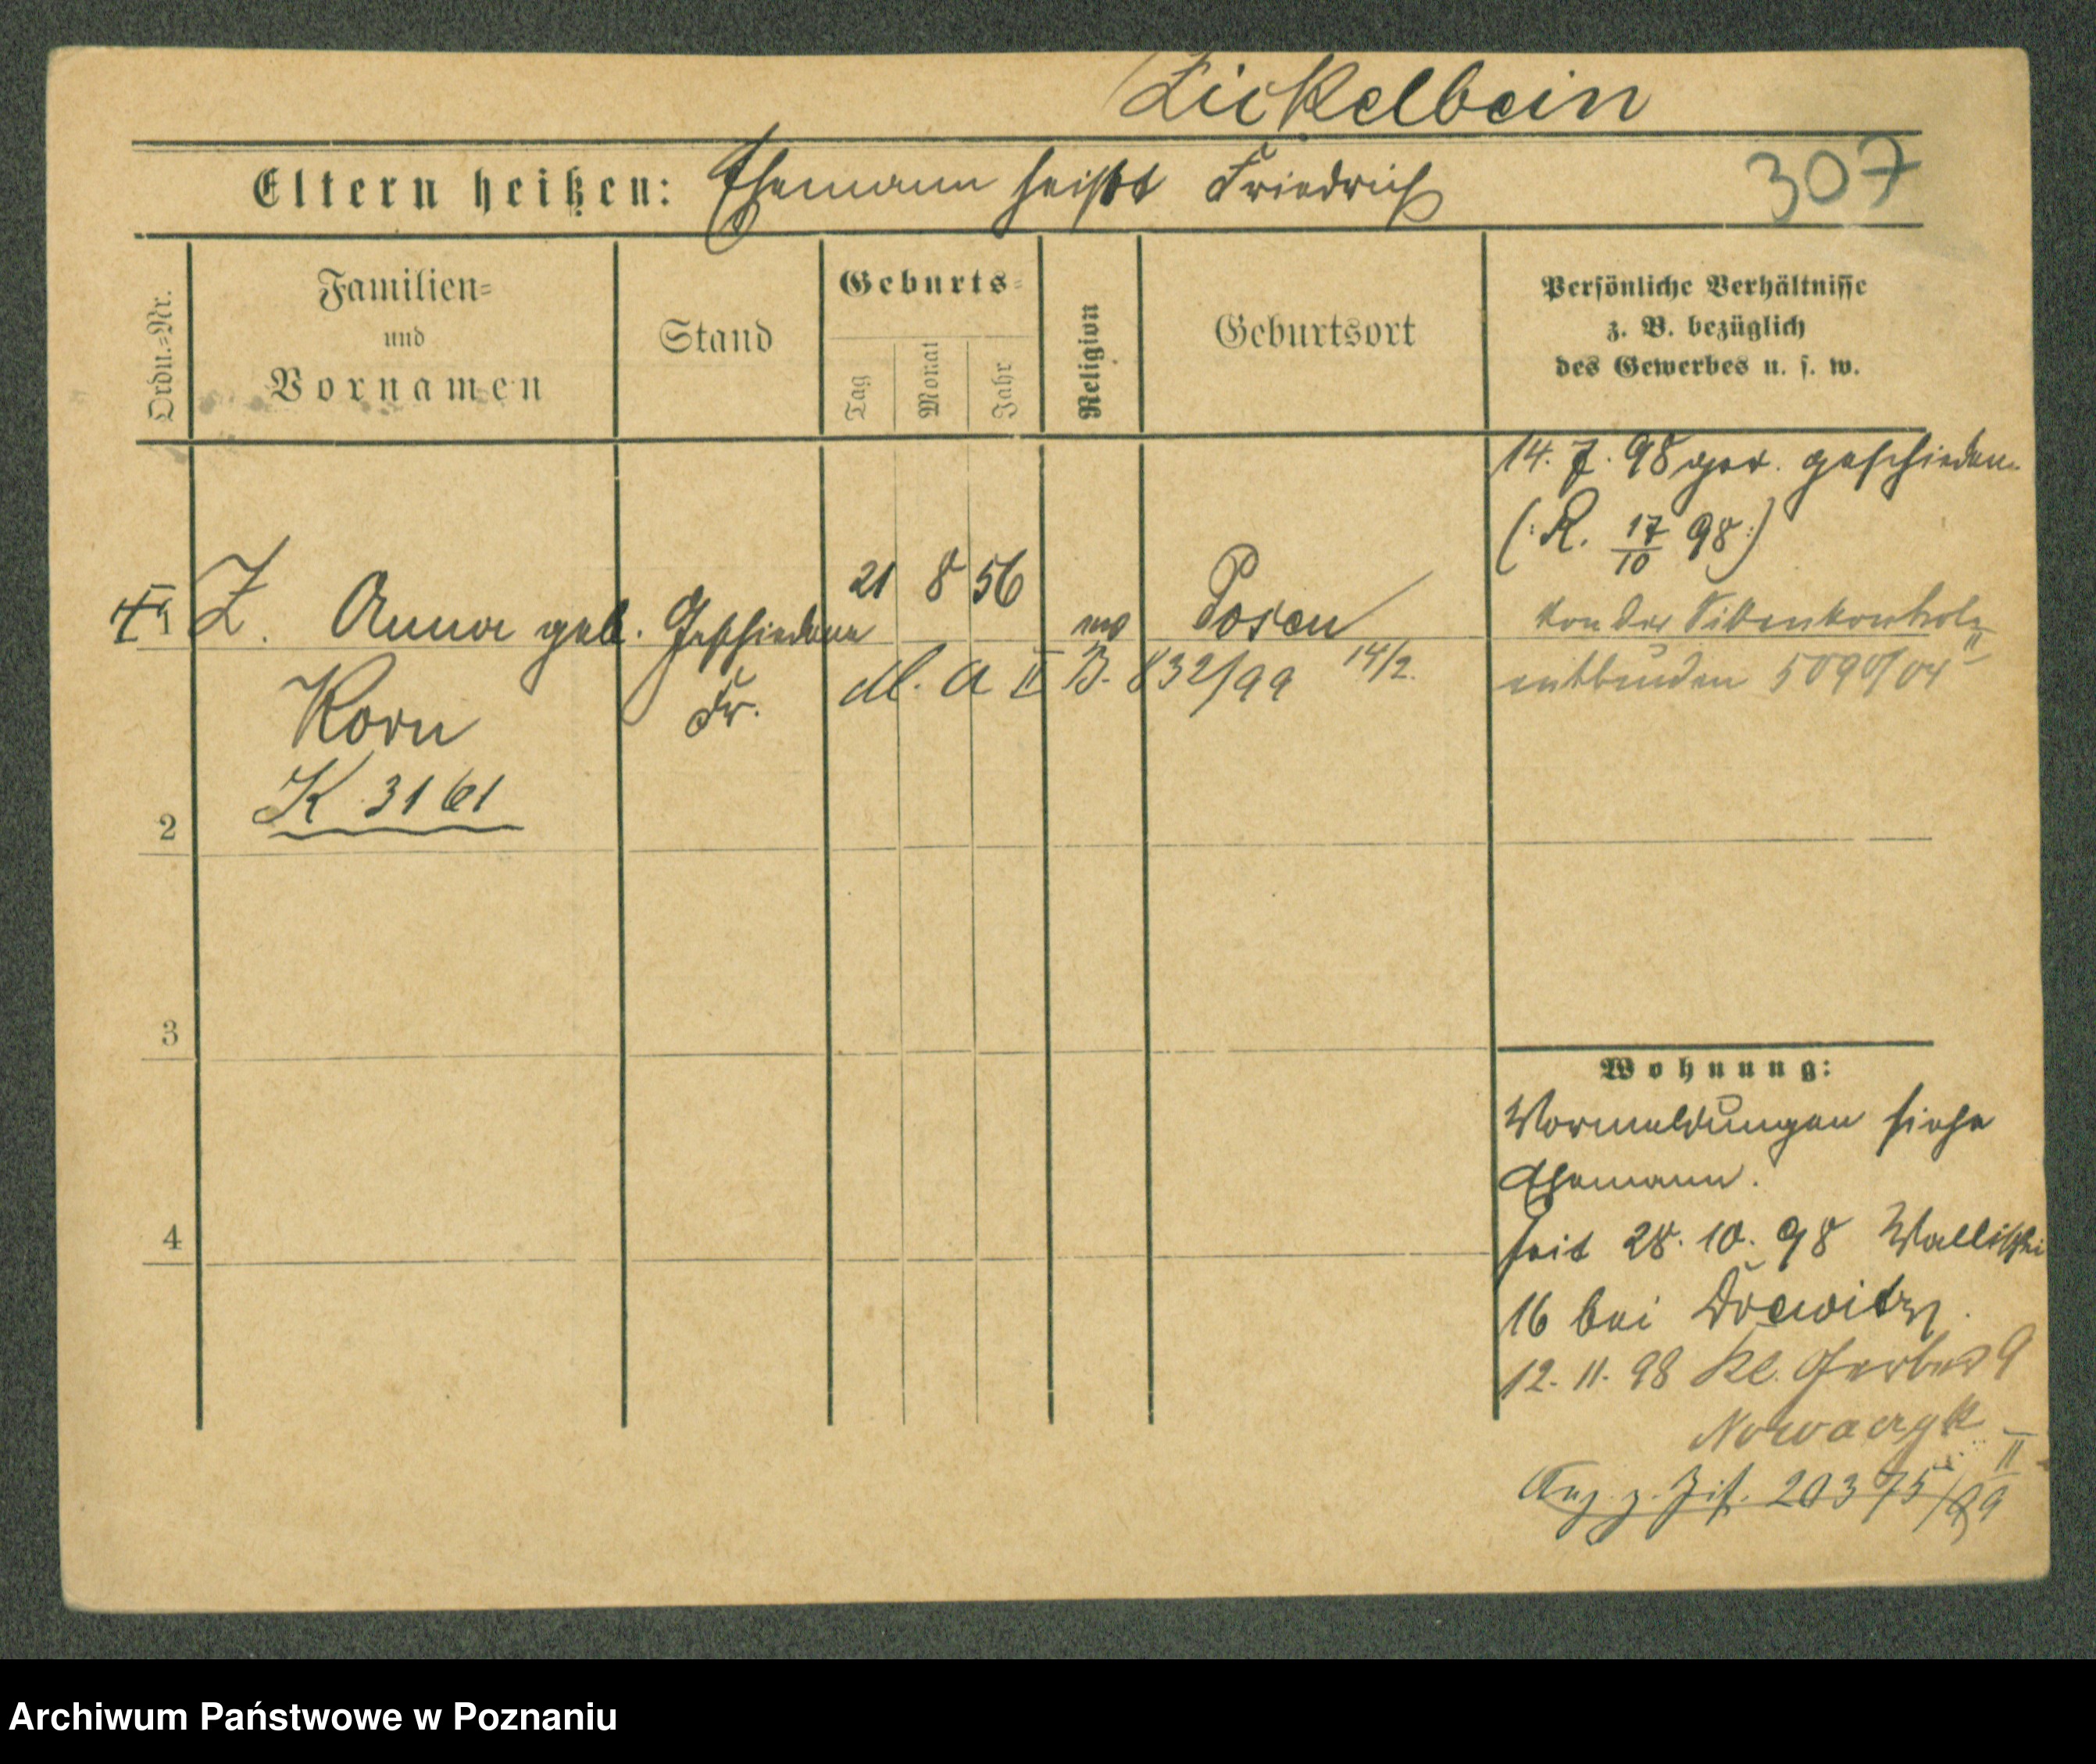 Zickelbein
Eltern heißen: Ehemann heißt Friedrich
307
Ordn.=Nr.
Familien=
und
Vornamen
Stand
Geburts=
Tag
Monat
Jahr
Religion
Geburtsort
Persönliche Verhältnisse
z. B. bezüglich
des Gewerbes u. s. w.
14. 7. 98 ger. geschieden
(: R. 17/10 98 :)
1 Z. Anna geb. Geschiedene 21 8 56 Posen
Korn Fr. M. A II B. 832/99 14/2.
von der Sittenkontrole
entbunden 5090/04 II
K 3161
2
3
4
Wohnung:
Vormeldungen siehe
Ehemann.
seit 28. 10. 98 Wallischei
16 bei Drewitz.
12. 11. 98 Kl. Gerberst 9
Nowaczyk
20375/99 II
Archiwum Państwowe w Poznaniu